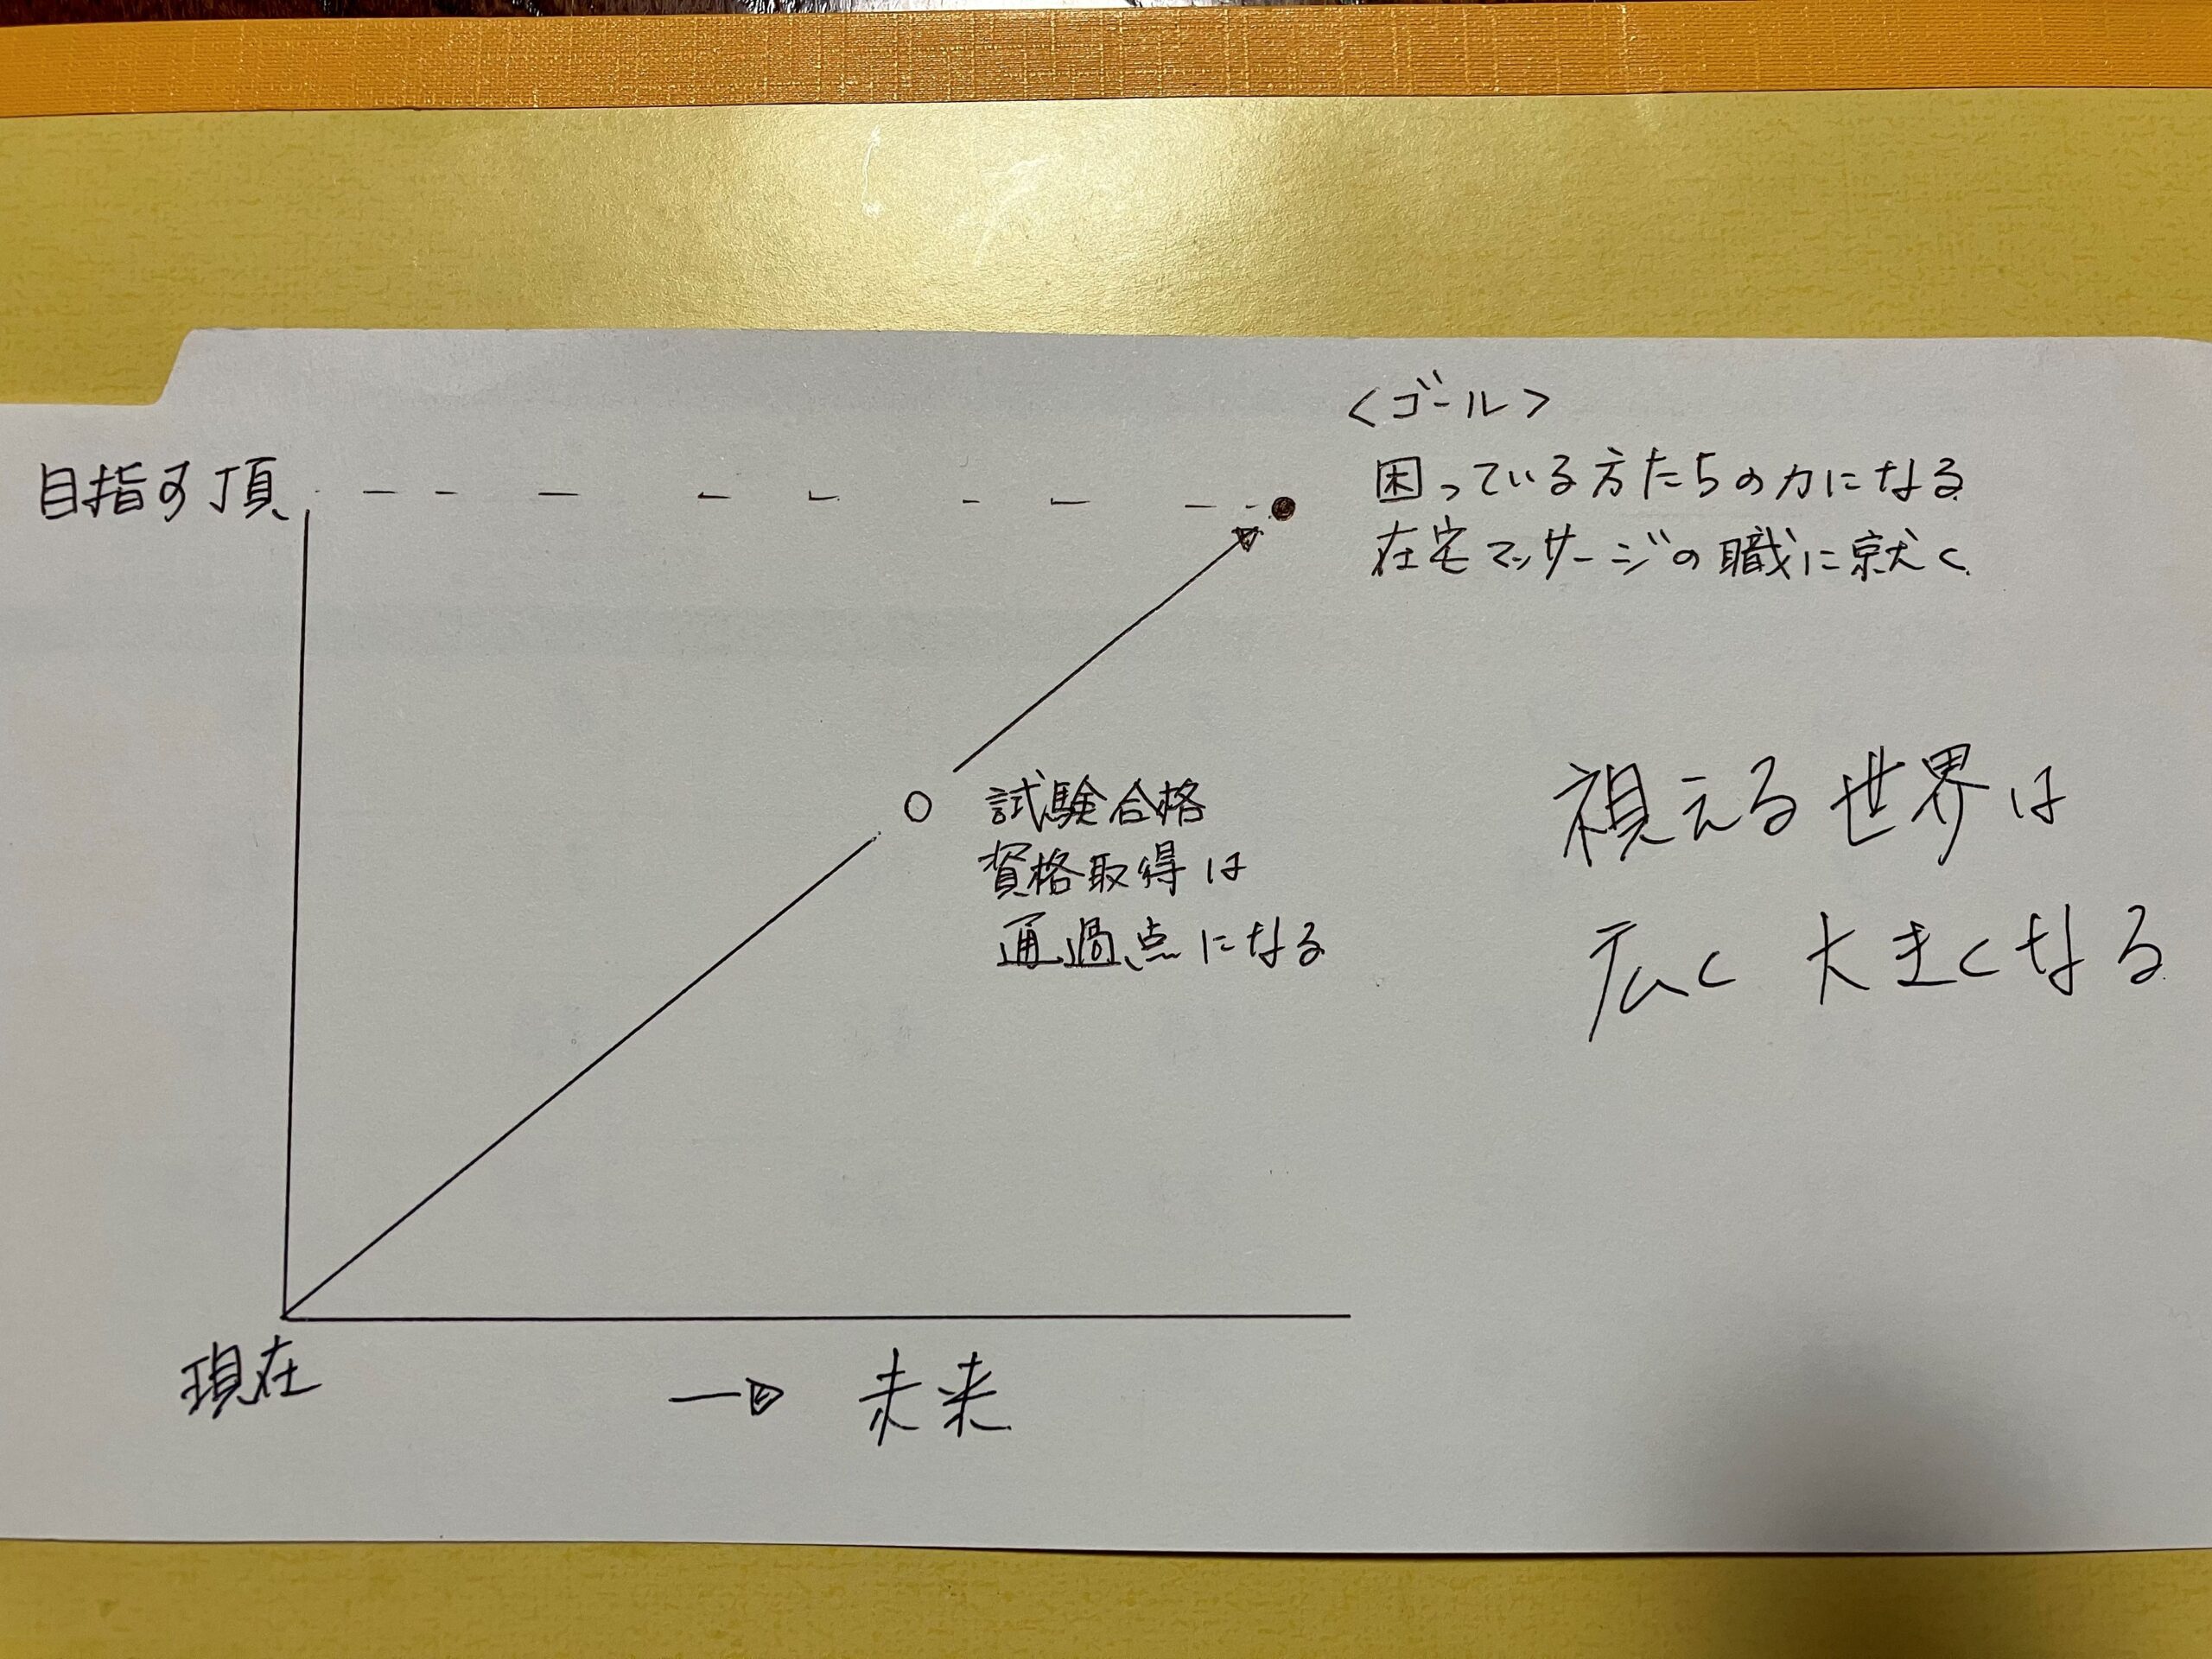 <ゴール>
目指す頂
困っている方たちの力になる
在宅マッサージの職に就く
試験合格
資格取得は
通過点になる
視える世界は
広く大きくなる
現在
→ 未来